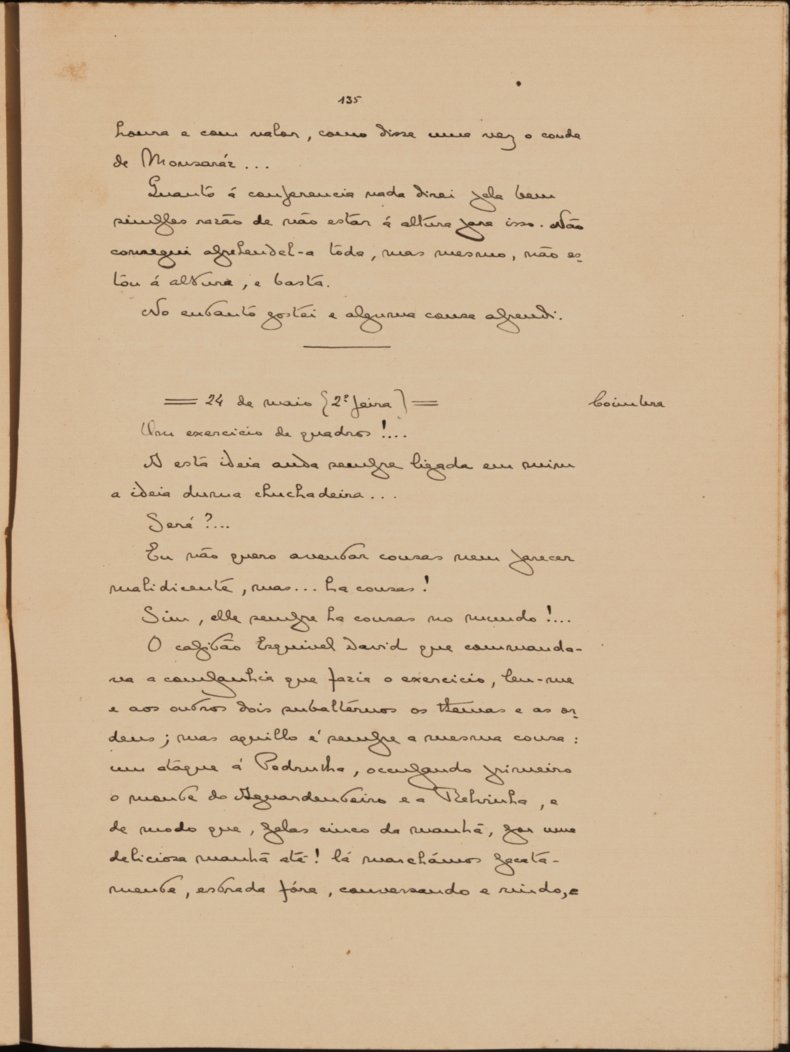 135
honra e com valor, como disse uma vez o conde
de Monsaráz...
Quanto á conferencia nada direi pela bem
simples razão de não estar á altura para isso. Não
consegui aprehendel-a toda, mas mesmo, não es-
tou á altura, e basta.
No entanto gostei e alguma cousa aprendi.
= 24 de maio (2ª feira) = Coimbra
Um exercicio de quadros!...
A esta ideia anda sempre ligada em mim
a ideia duma chuchadeira...
Será?...
Eu não quero aventar cousas nem parecer
malidicente, mas... ha cousas!
Sim, elle sempre ha cousas no mundo!...
O capitão Esquivel David que commanda-
va a companhia que fazia o exercicio, leu-me
e aos outros dois subaltérnos os themas e as or-
dens; mas aquillo é sempre a mesma cousa:
um ataque á Pedrulha, occupando primeiro
o monte do Aguardenteiro e a Relvinha, e
de modo que, pelas cinco da manhã, por uma
deliciosa manhã até! lá marchámos pacata-
mente, estrada fóra, conversando e rindo, e